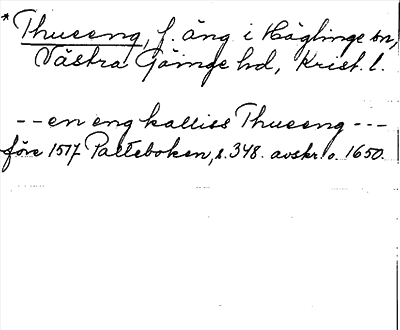 * Thuseng, f. äng i Häglinge sn,
Västra Göinge hd, Krist. l.
-- en eng kalliss Thuseng ---
före 1517 Palteboken, s. 348. avskr. o. 1650.